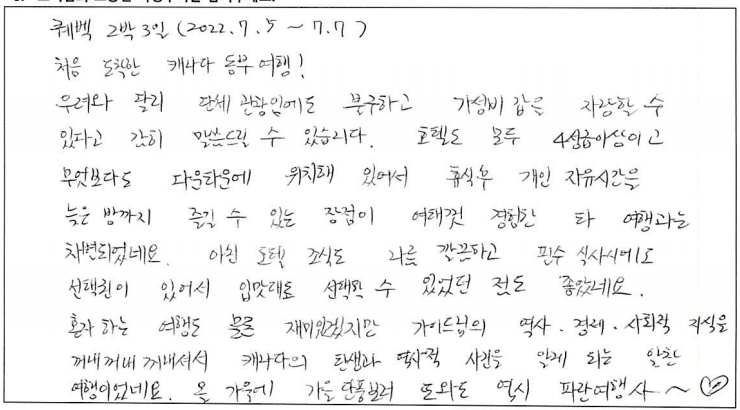 퀘벡 2박3일 (2022.7.5 ~ 7.7)
처음 도착한 캐나다 동부여행!
우려와 달리 단체관광임에도 불구하고 가성비갑을 자랑할 수
있다고 감히 말씀드릴 수 있습니다. 호텔도 모두 4성급이상이고
무엇보다도 다운타운에 위치해 있어서 휴식후 개인 자유시간을
늦은 밤까지 즐길 수 있는 장점이 여태껏 경험한 타 여행과는
차변되었네요. 아침 호텔 조식도 나름 깔끔하고 필수 식사시에도
선택권이 있어서 입맛대로 선택할 수 있었던 점도 좋았네요.
혼자 하는 여행도 물론 재미있겠지만 가이드님의 역사.경제.사회적 지식을
꺼내꺼내 꺼내셔서 캐나다의 탄생과 역사적 사건을 알게 되는 알찬
여행이었네요. 올 가을에 가을단풍보러 또와도 역시 파란여행사 ~